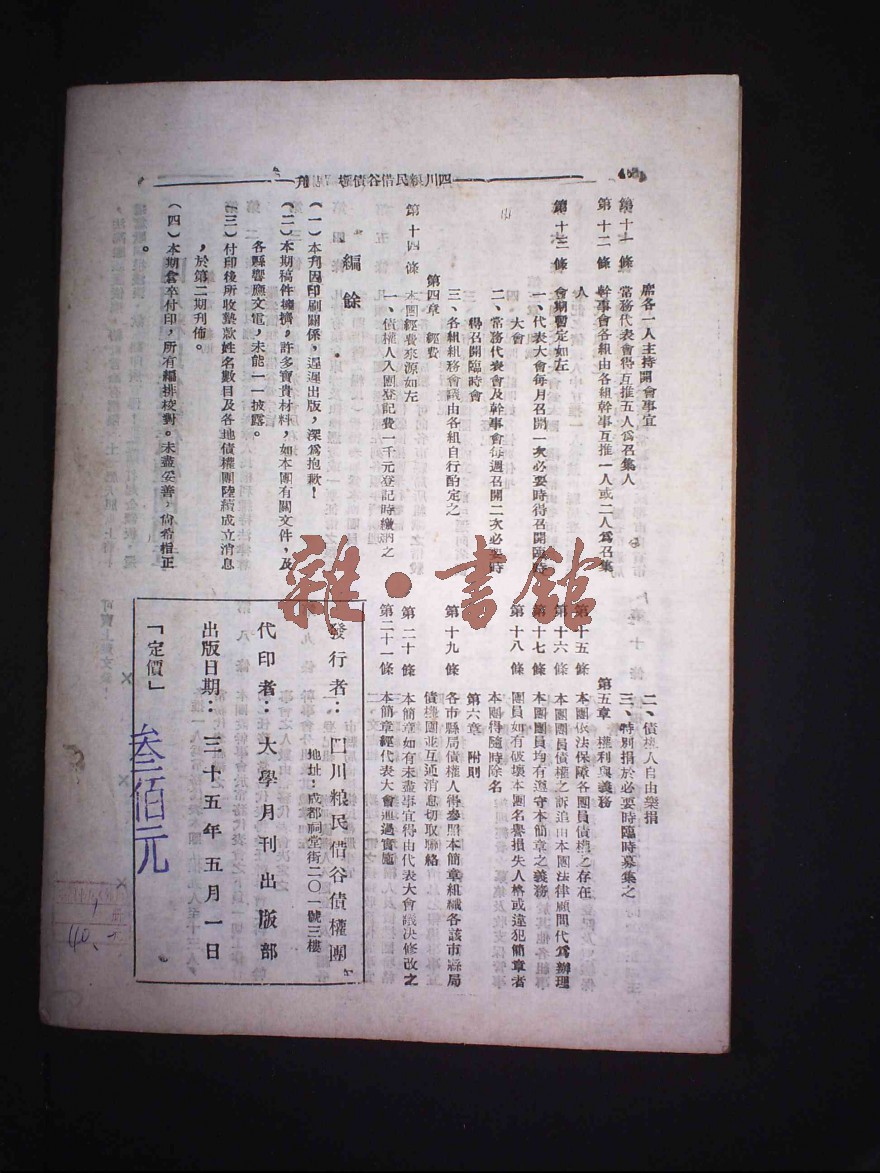 四川粮民借谷債權團刊
席各一人主持開會事宜
第十一條 常務代表會得互推五人爲召集人
第十二條 幹事會各組由各組幹事互推一人或二人爲召集
人
第十三條 會期暫定如左
一、代表大會每月召開一次必要時得召開臨時
大會
二、常務代表會及幹事會每週召開二次必要時
得召開臨時會
三、各組組務會議由各組自行酌定之
第四章 經費
第十四條 本團經費來源如左
一、債權人入團登記費一千元登記時繳納之
編餘
(一)本刋因印刷關係,遲遲出版,深爲抱歉!
(二)本期稿件擁擠,許多寶貴材料,如本團有關文件,及
各縣響應文電,未能一一披露。
(三)付印後所收墊款姓名數目及各地債權團陸續成立消息
,於第二期刋佈。
(四)本期倉卒付印,所有編排校對。未盡妥善,尙希指正
。
二、債權人自由樂捐
三、特別捐於必要時臨時募集之
第五章 權利與義務
第十五條 本團依法保障各團員債權之存在
第十六條 本團團員債權之訴追由本團法律顧問代爲辦理
第十七條 本團團員均有遵守本簡章之義務
第十八條 團員如有破壞本團名譽損失人格或違犯簡章者
本團得隨時除名
第六章 附則
第十九條 各市縣局債權人得參照本簡章組織各該市縣局
債權團並互通消息切取聯絡
第二十條 本簡章如有未盡事宜得由代表大會議決修改之
第二十一條 本簡章經代表大會通過實施
發行者:四川粮民借谷債權團
地址:成都祠堂街二〇一號三樓
代印者:大學月刊出版部
出版日期:三十五年五月一日
「定價」 叁佰元
雜·書館
40.